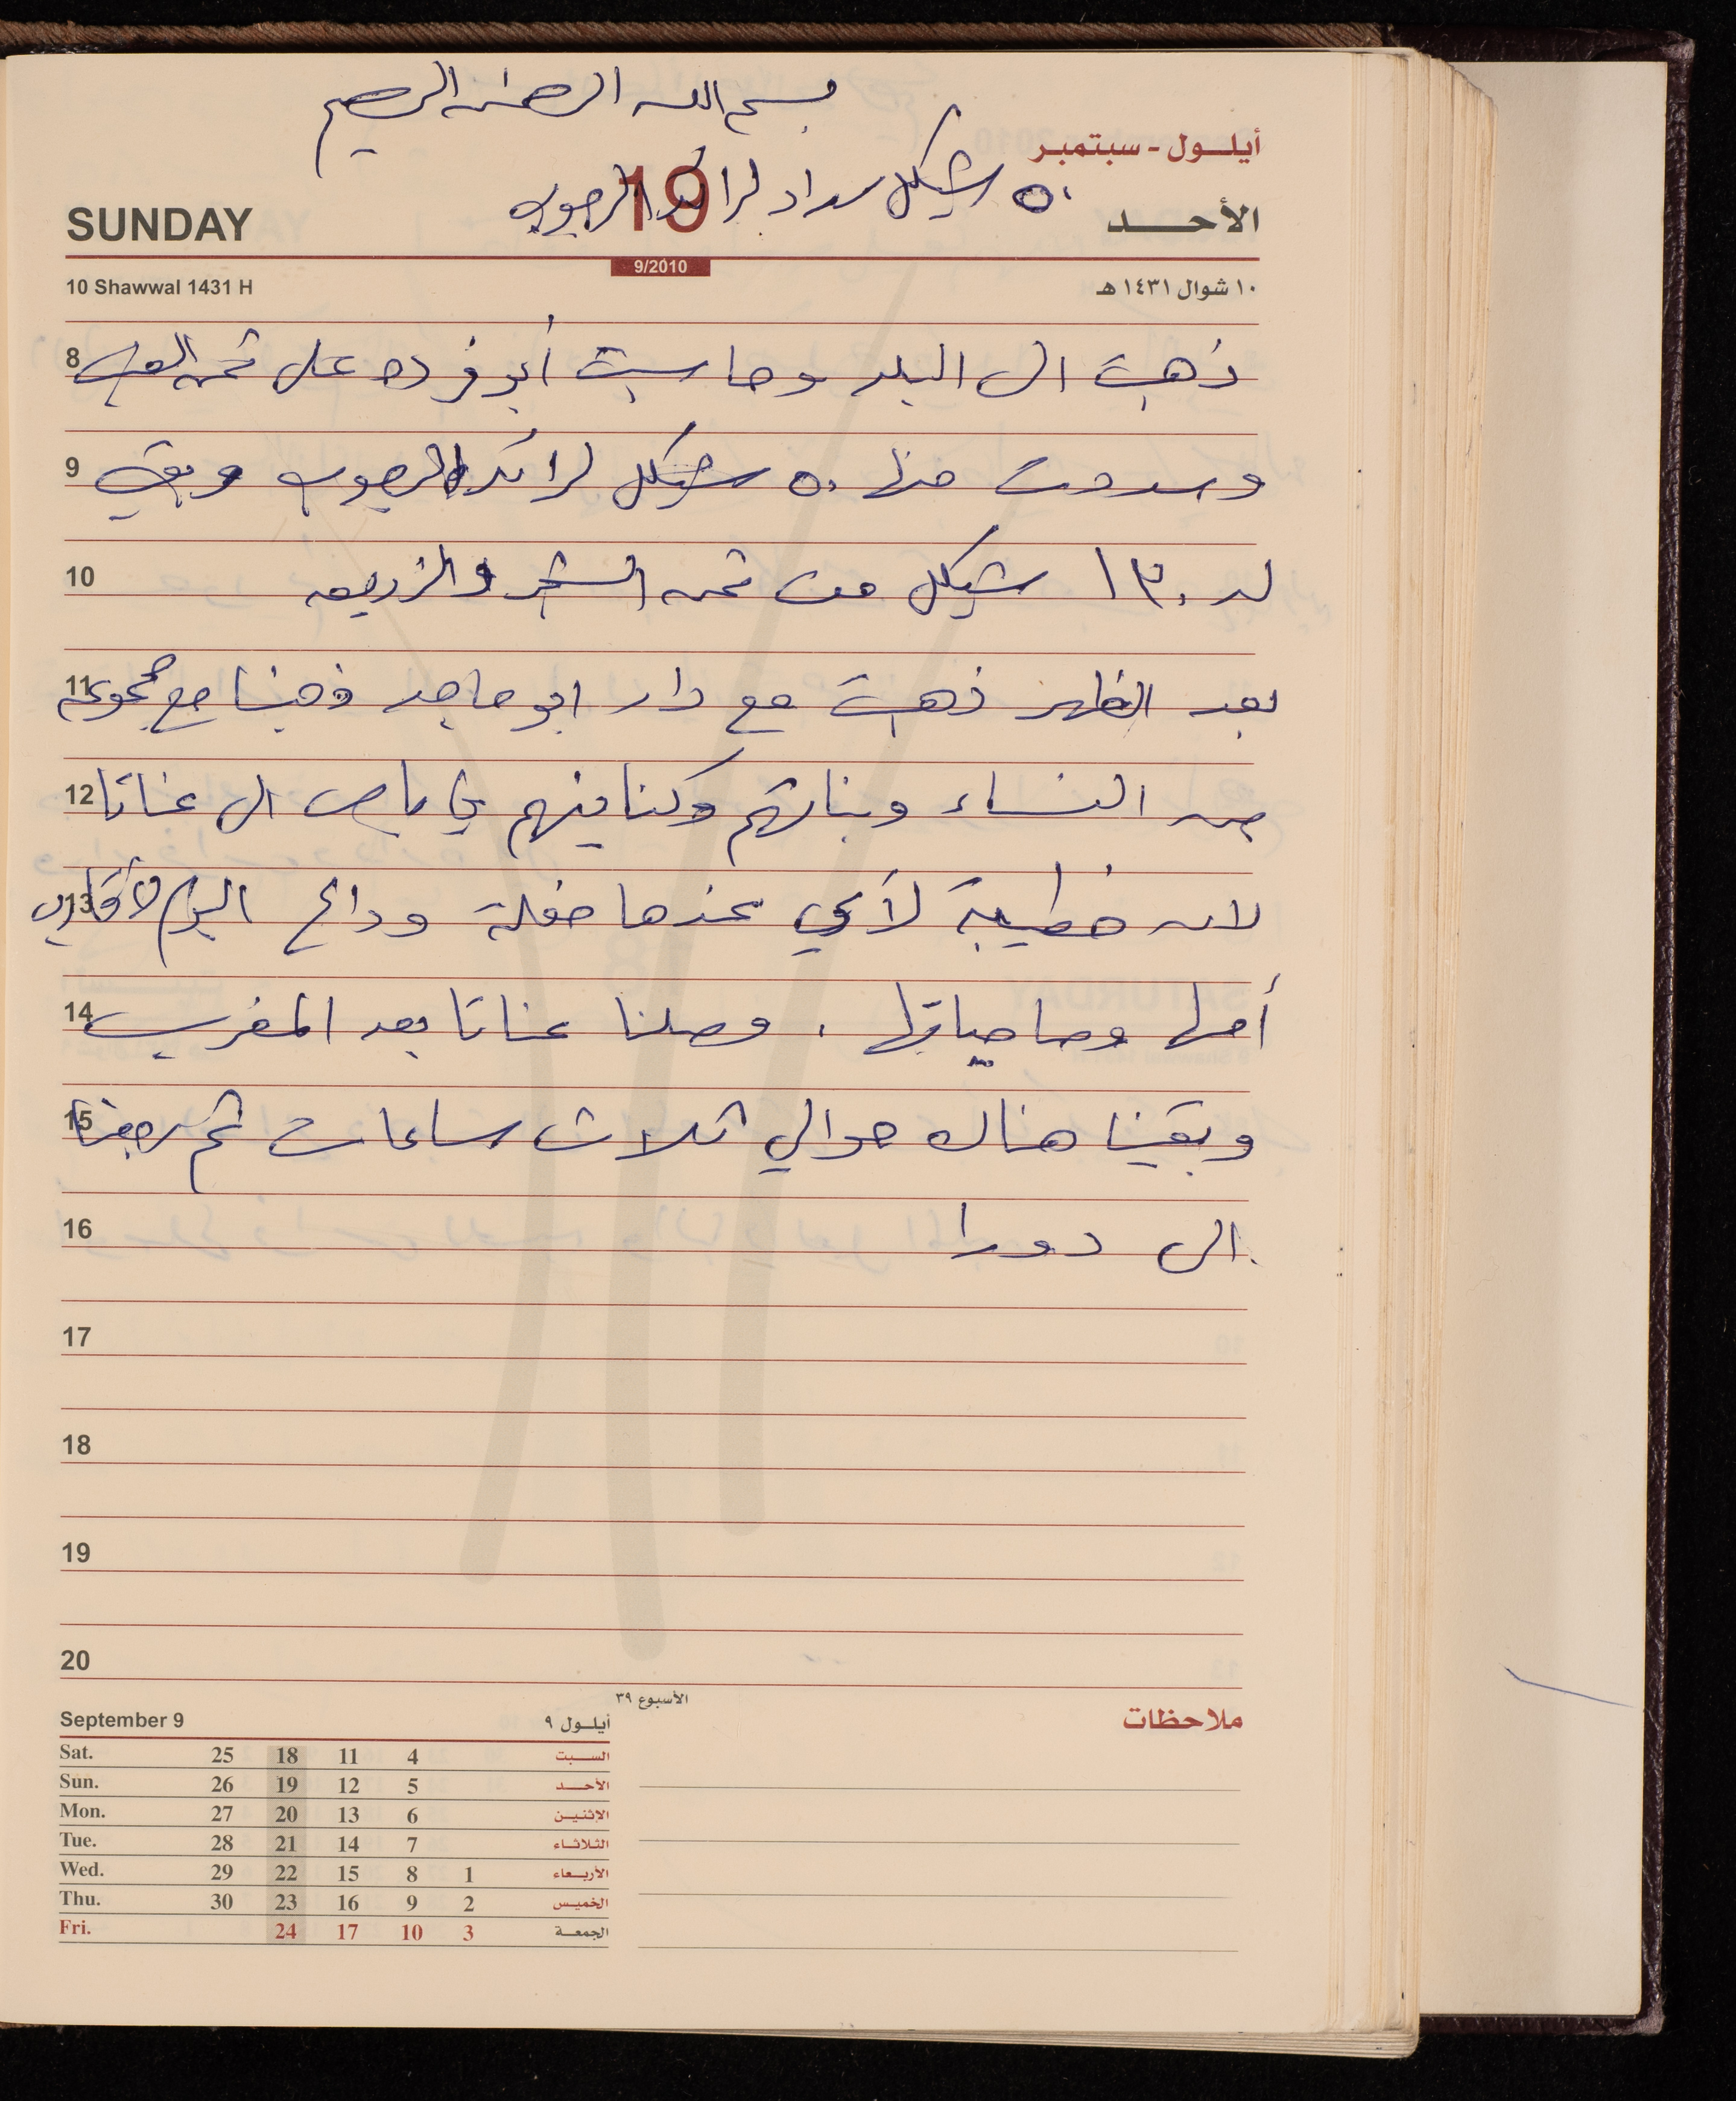 بسم الله الرحمن الرحيم
أيلول - سبتمبر
٥٠ شيكل سداد لرائد الرجوب
SUNDAY
19
الأحد
9/2010
10 Shawwal 1431 H
١٠ شوال ١٤٣١ هـ
8 ذهبت الى البلد وحاسبت أبو فرده على ثمن
9 وسددت منها ٥٠ شيكل لرائد الرجوب وبقي
10 له ١٣٠ شيكل من ثمن الشجر والزريعه
11 بعد الظهر ذهبت مع دار ابو ماجد وذهبنا مع مجموعه
12 من النساء وبناتهم وكنا فيهم في باص الى عناتا
13 لان خطيبة لأي عندها حفلة وداع اليوم لأقارب
14 أمها وصاحباتها . وصلنا عناتا بعد المغرب
15 وبقينا هناك حوالي ثلاث ساعات ثم رجعنا
16 الى دورا .
17
18
19
20
الأسبوع ٣٩
September 9 أيلول ٩
ملاحظات
Sat. 25 18 11 4 السبت
Sun. 26 19 12 5 الأحد
Mon. 27 20 13 6 الاثنين
Tue. 28 21 14 7 الثلاثاء
Wed. 29 22 15 8 1 الأربعاء
Thu. 30 23 16 9 2 الخميس
Fri. 24 17 10 3 الجمعة